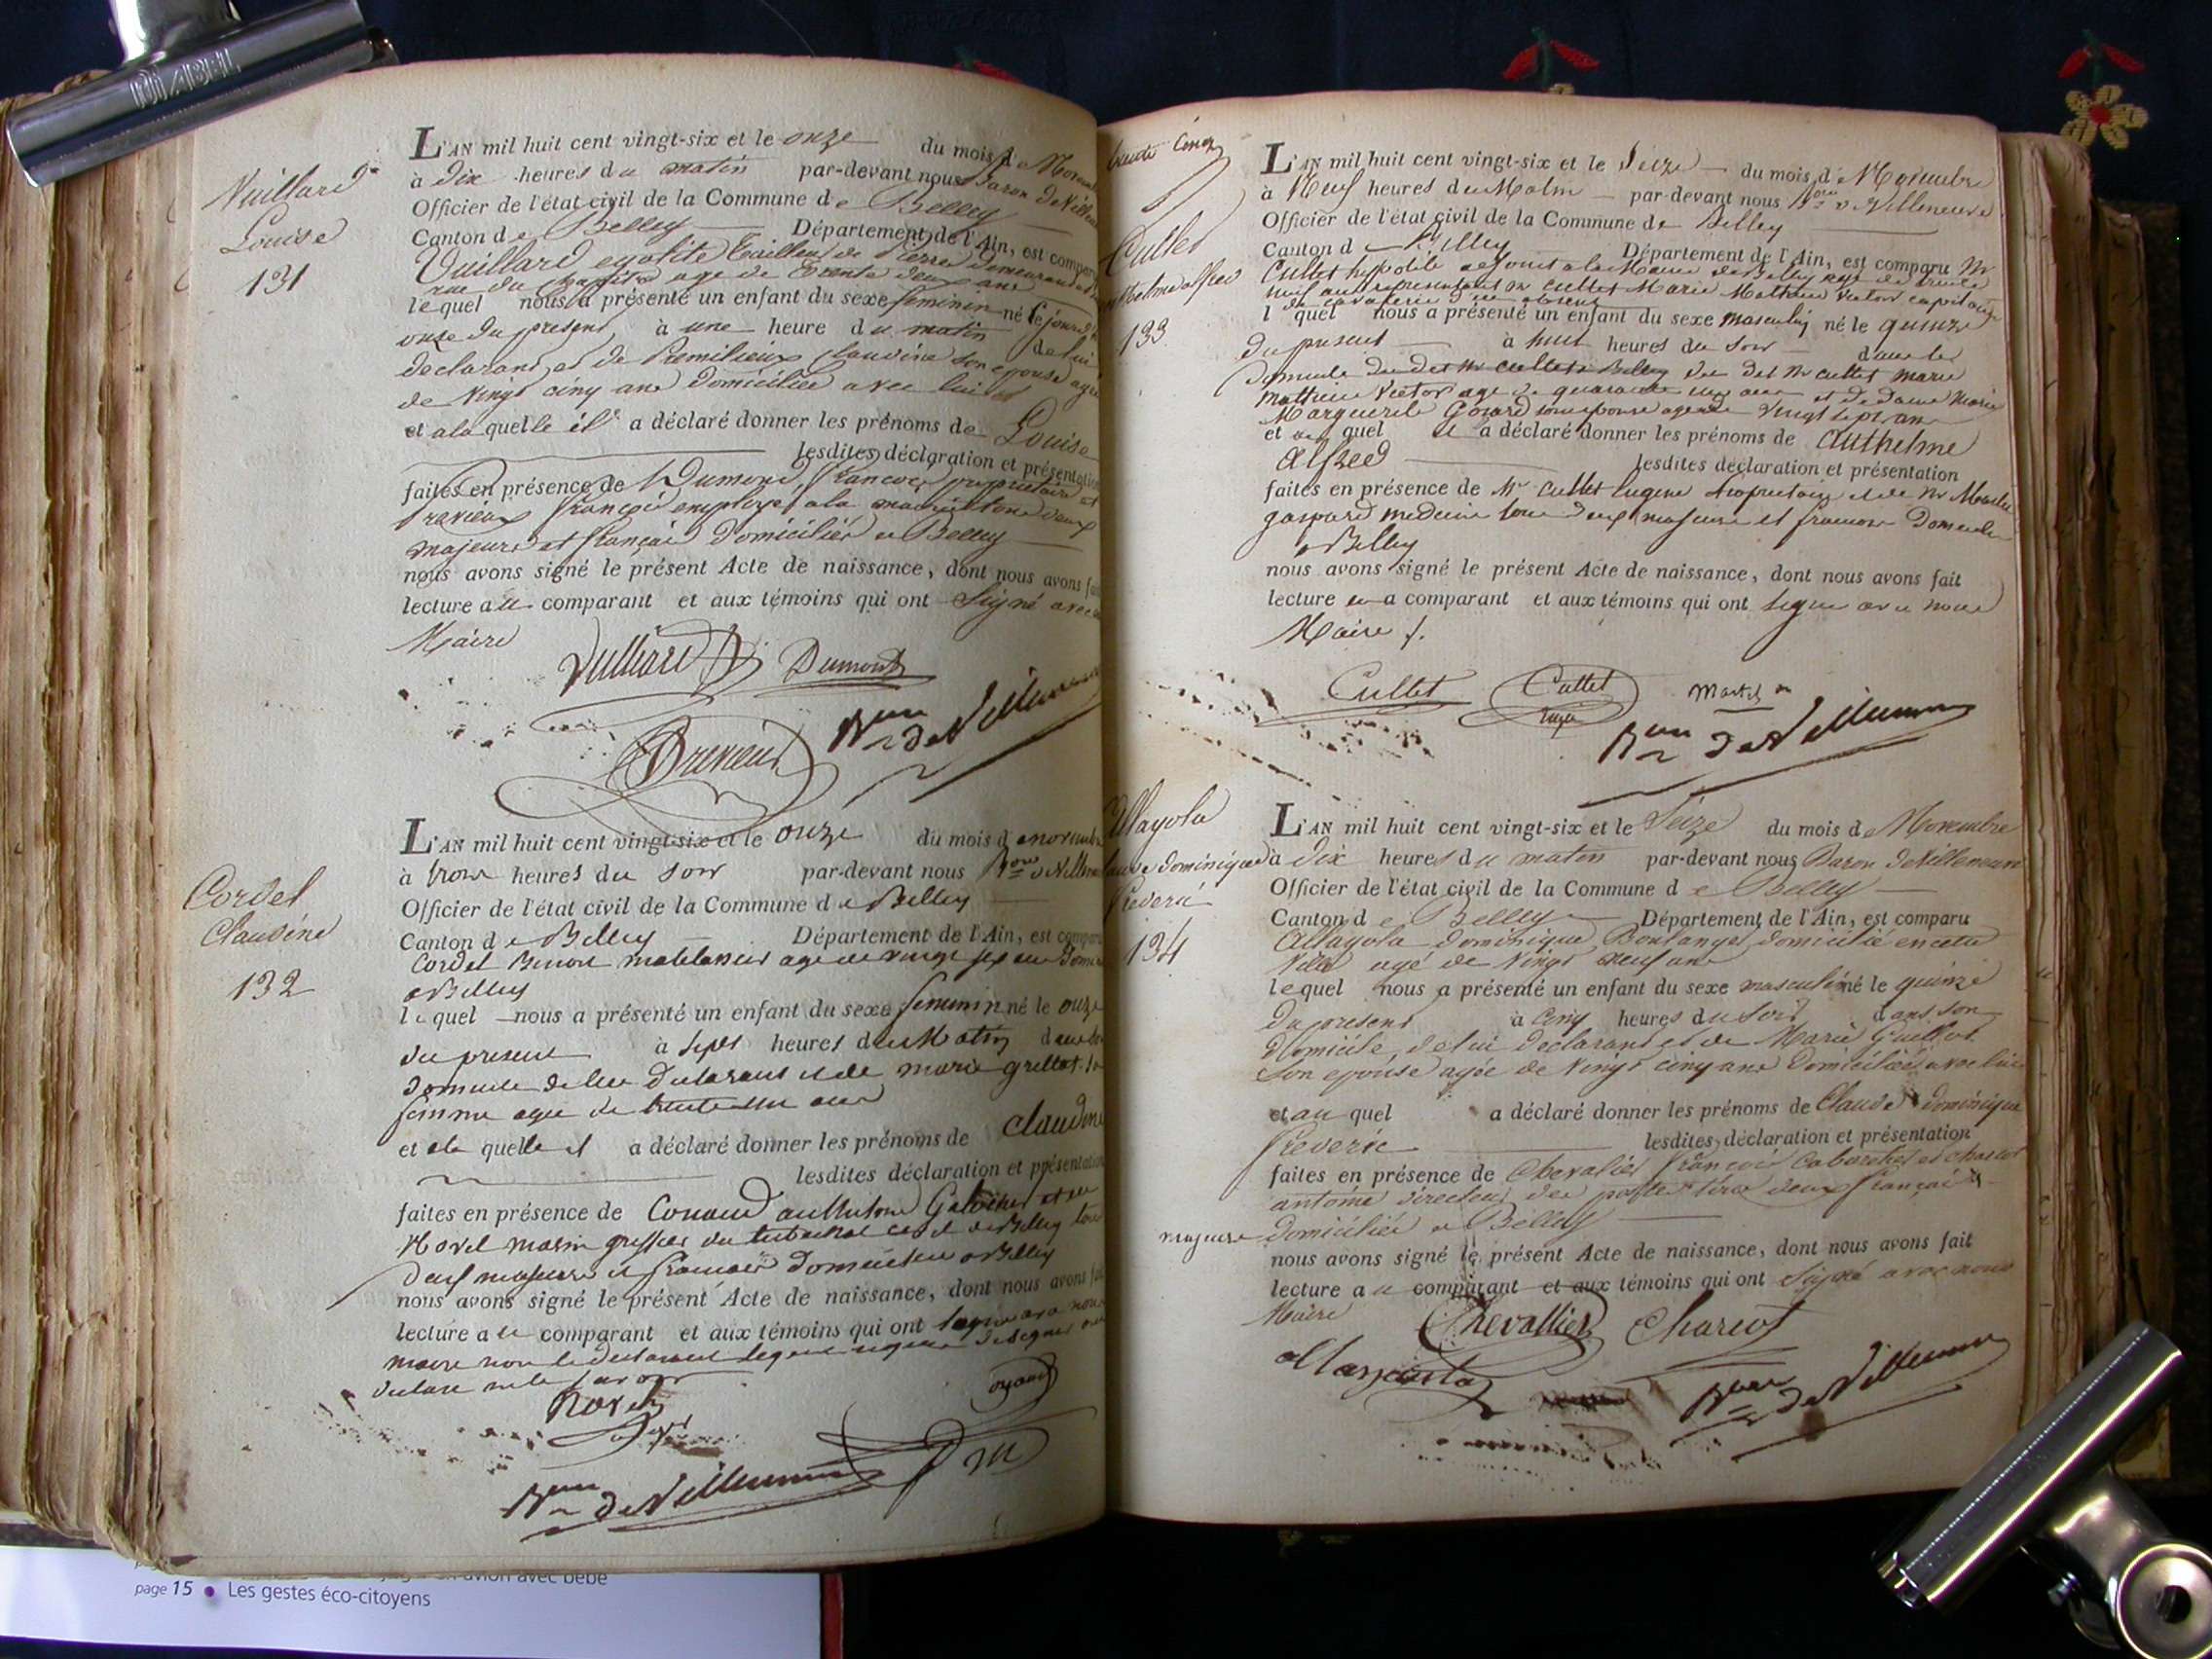 DIABEL
Vuillard
Louise
131
L'AN mil huit cent vingt-six et le onze du mois de
à dix heures du matin par-devant nous Baron de
Officier de l'état civil de la Commune de Belley
Canton de Belley Département de l'Ain, est
Vuillard Tailleur de Pierre
rue du age de trente deux ans
lequel nous a présenté un enfant du sexe feminin né le
onze du present à une heure du matin de lui
declarant et de Claudine son epouse agée
de vingt cinq ans domiciliée avec lui
et a la quelle il a déclaré donner les prénoms de Louise
lesdites déclaration et présentation
faites en présence de Dumond francois proprietaire et
françois employé a la mairie tous deux
majeurs et français domiciliés a Belley
nous avons signé le présent Acte de naissance, dont nous avons
lecture au comparant et aux témoins qui ont signé avec
Maire
Dumont
Bon de Villeneuve
Cordel
Claudine
132
L'AN mil huit cent vingt-six et le onze du mois de novembre
à trois heures du soir par-devant nous Bon de
Officier de l'état civil de la Commune de Belley
Canton de Belley Département de l'Ain, est
Cordel Benoit matelassier age de vingt
a Belley
lequel nous a présenté un enfant du sexe feminin né le onze
du present à sept heures du Matin dans le
domicile de lui declarant et de marie grillot
femme agee de trente un ans
et a la quelle il a déclaré donner les prénoms de Claudine
lesdites déclaration et présentation
faites en présence de et de
greffier du tribunal civil de Belley tous
deux majeurs et francais domicilies a Belley
nous avons signé le présent Acte de naissance, dont nous avons
lecture au comparant et aux témoins qui ont signé avec nous
maire non le declarant
declare ne le savoir
Bon de Villeneuve
Cullet
133
L'AN mil huit cent vingt-six et le Seize du mois de Novembre
à Neuf heures du Matin par-devant nous Bon de Villeneuve
Officier de l'état civil de la Commune de Belley
Canton de Belley Département de l'Ain, est comparu Mr
Cullet hypolite adjoint a la Mairie de Belley age de trente
neuf ans representant Mr Cullet Marie Mathieu Victor capitaine
de cavalerie absent
lequel nous a présenté un enfant du sexe masculin né le quinze
du present à huit heures du soir dans le
domicile du dit Mr Cullet a Belley du dit Mr Cullet marie
mathieu Victor age de quarante un ans et de dame Marie
Marguerite son epouse agee de vingt sept ans
et au quel il a déclaré donner les prénoms de Anthelme
Alfred lesdites déclaration et présentation
faites en présence de Mr Cullet Eugene proprietaire et de Mr
gaspard medecin tous deux majeurs et francais
a Belley
nous avons signé le présent Acte de naissance, dont nous avons fait
lecture au comparant et aux témoins qui ont signé avec nous
Maire
Cullet Cullet
Bon de Villeneuve
Allayola
Claude dominique
frederic
134
L'AN mil huit cent vingt-six et le Seize du mois de Novembre
à dix heures du matin par-devant nous Baron de Villeneuve
Officier de l'état civil de la Commune de Belley
Canton de Belley Département de l'Ain, est comparu
Allayola dominique Boulanger domicilié en cette
Ville agé de vingt neuf ans
lequel nous a présenté un enfant du sexe masculin né le quinze
du present à cinq heures du soir dans son
domicile, de lui declarant et de Marie Guillot
son epouse agée de vingt cinq ans domiciliée avec lui
et au quel a déclaré donner les prénoms de Claude dominique
frederic lesdites déclaration et présentation
faites en présence de Chevalier françois cabaretier et charcot
antoine directeur des postes tous deux français
majeurs domiciliés a Belley
nous avons signé le présent Acte de naissance, dont nous avons fait
lecture au comparant et aux témoins qui ont signé avec nous
Maire Chevallier Charcot
Bon de Villeneuve
avion avec bébé
page 15 • Les gestes éco-citoyens